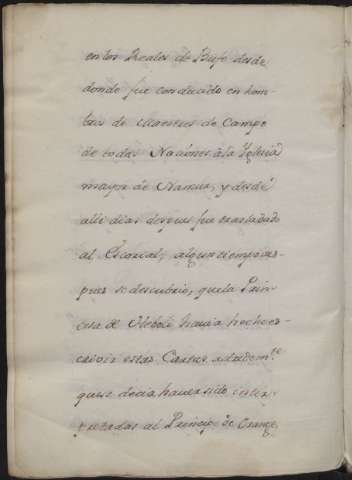 en los Reales de Bufe desde
donde fue conducido en hom-
bros de Maestres de Campo
de todas Naciones à la Yglesia
mayor de Namur, y desde
alli dias despues fue trasladado
al Escorial; algun tiempo des-
pues se descubrio, que la Prin
cesa de Eboli havia hecho es-
crivir estas Cartas
que se decia haver sido inter-
ceptadas al Principe de Orange